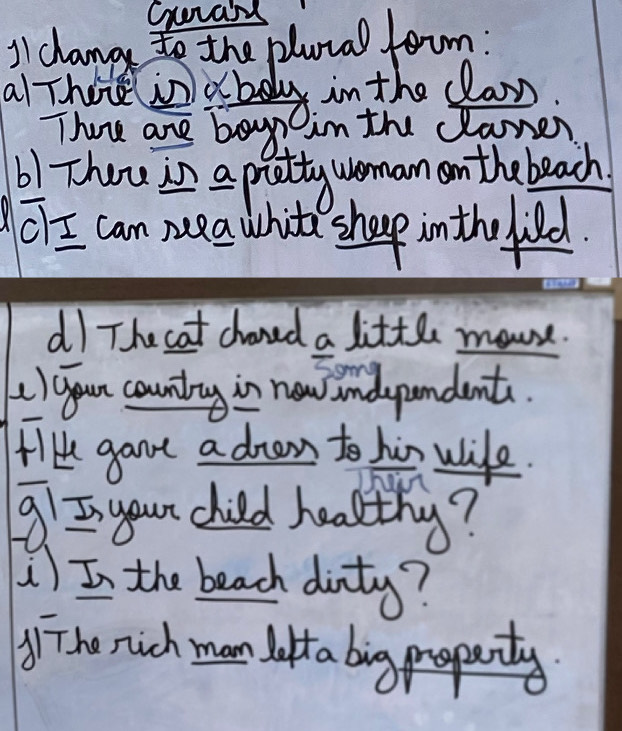 Exercise
1) change to the plural form:
a) There is a boy in the class.
There are boys in the classes.
b) There is a pretty woman on the beach.
c) I can see a white sheep in the fild.
d) The cat chased a little mouse.
Some
e) Your country is now independent.
f) He gave a dress to his wife.
Their
g) Is your child healthy?
i) Is the beach dirty?
j) The rich man left a big property.